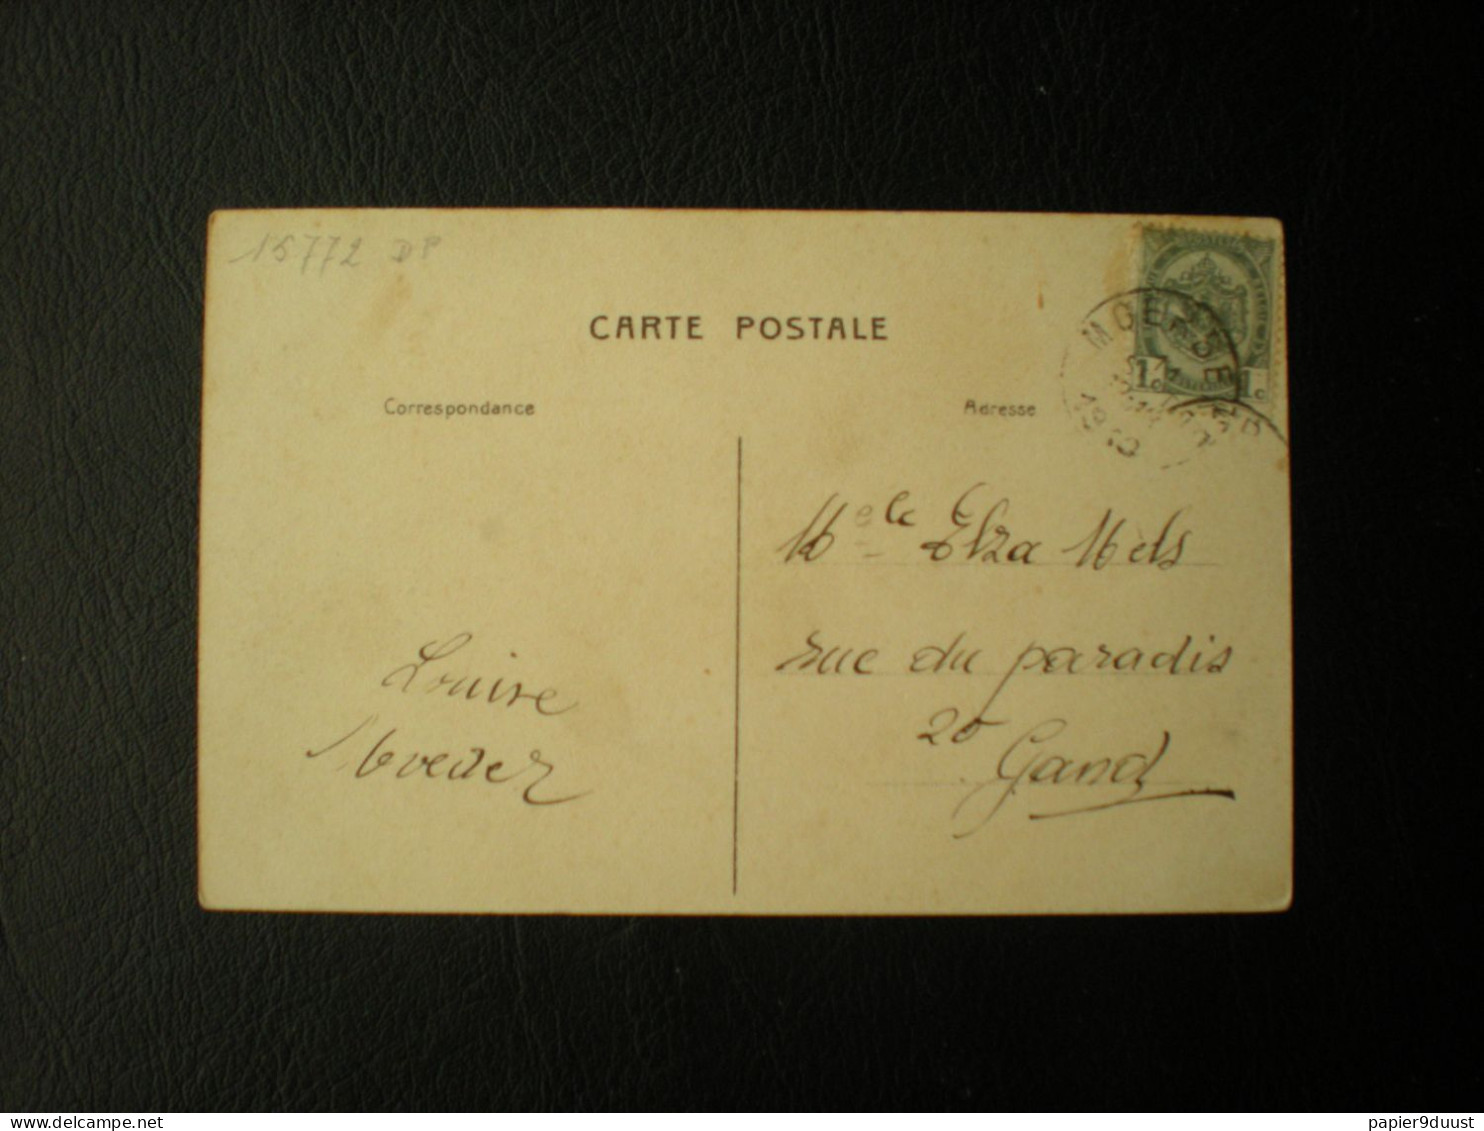 15772 DP
CARTE POSTALE
Correspondance
Adresse
1c 1c
1910
Melle Elza Mels
rue du paradis
20
Gand
Louise
delcampe.net
papier9duust